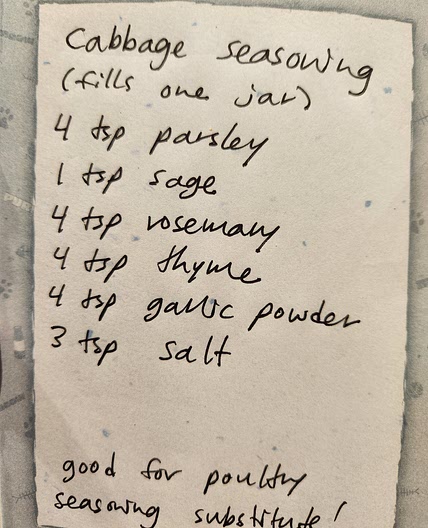 Cabbage seasoning
(fills one jar)
4 tsp parsley
1 tsp sage
4 tsp rosemary
4 tsp thyme
4 tsp garlic powder
3 tsp salt
good for poultry
seasoning substitute!